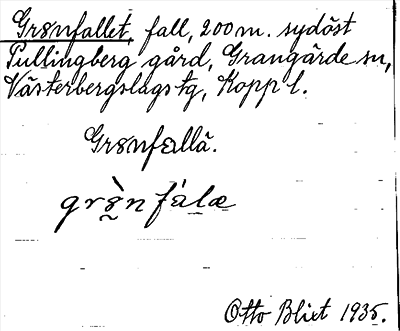 Grönfallet, fall, 200 m. sydöst
Pullingberg gård, Grangärde sn,
Västerbergslags tg, Kopp l.
Grönfallä.
grö̀n fálæ
Otto Blixt 1935.